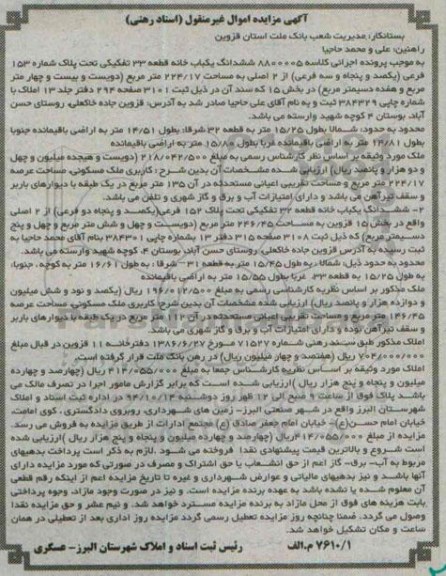 آگهی مزایده اموال غیرمنقول (اسناد رهنی)
بستانکار: مدیریت شعب بانک ملت استان قزوین
راهنین: علی و محمد حاجیا
به موجب پرونده اجرائی کلاسه 8800005 ششدانگ یکباب خانه قطعه 33 تفکیکی تحت پلاک شماره 153
فرعی (یکصد و پنجاه و سه فرعی) از 2 اصلی به مساحت 224/17 متر مربع (دویست و بیست و چهار متر
مربع و هفده دسیمتر مربع) در بخش 15 که سند آن در ذیل ثبت 3101 صفحه 294 دفتر جلد 13 املاک با
شماره چاپی 384329 ثبت و به نام آقای علی حاجیا صادر شد به آدرس: قزوین جاده خاکعلی، روستای حسن
آباد، بوستان 4 کوچه شهید وارسته می باشد.
محدود به حدود: شمالا بطول 15/25 متر به قطعه 32 شرقا: بطول 14/51 متر به اراضی باقیمانده جنوبا
بطول 14/81 متر به اراضی باقیمانده غربا بطول 15/80 متر به اراضی باقیمانده
ملک مورد وثیقه بر اساس نظر کارشناس رسمی به مبلغ 218/042/500 ریال (دویست و هیجده میلیون و چهل
و دو هزار و پانصد ریال) ارزیابی شده مشخصات آن بدین شرح: کاربری ملک مسکونی، مساحت عرصه
224/17 متر مربع و مساحت تقریبی اعیانی مستحدثه در آن 135 متر مربع در یک طبقه با دیوارهای باربر
و سقف تیرآهن می باشد و دارای امتیازات آب و برق و گاز شهری و تلفن می باشد.
2- ششدانگ یکباب خانه قطعه 32 تفکیکی تحت پلاک 152 فرعی(یکصد و پنجاه دو فرعی) از 2 اصلی
واقع در بخش 15 قزوین به مساحت 246/45 متر مربع (دویست و چهل و شش متر مربع و چهل و پنج
دسیمترمربع) که ذیل ثبت 3108 صفحه 315 دفتر 13 بشماره چاپی 384301 بنام آقای محمد حاجیا به
ثبت رسیده به آدرس قزوین جاده خاکعلی، روستای حسن آباد، بوستان 4، کوچه شهید وارسته می باشد.
محدود به حدود ذیل شمالا، به طول 15/45 متر به قطعه 31 - شرقا: به طول 16/61 متر به کوچه، جنوبا:
به طول 15/25 به قطعه 33، غربا بطول 15/55 متر به اراضی باقیمانده
ملک مذکور بر اساس نظریه کارشناسی رسمی به مبلغ 196/012/500 ریال (یکصد و نود و شش میلیون
و دوازده هزار و پانصد ریال) ارزیابی شده مشخصات آن بدین شرح: کاربری ملک مسکونی، مساحت عرصه
246/45 متر مربع و مساحت تقریبی اعیانی مستحدثه در آن متر مربع در یک طبقه با دیوارهای باربر
و سقف تیرآهن بوده و دارای امتیازات آب و برق و گاز شهری می باشد.
املاک مذکور طبق سند رهنی شماره 71527 مورخ 1386/6/27 دفترخانه 11 قزوین در قبال مبلغ
704/000/000 ریال (هفتصد و چهار میلیون ریال) در رهن بانک ملت قرار گرفته است.
املاک مورد وثیقه بر اساس نظریه کارشناس جمعا به مبلغ 414/055/000 ریال (چهارصد و چهارده
میلیون و پنجاه و پنج هزار ریال) ارزیابی شده است که برابر گزارش مامور اجرا در تصرف مالک می
باشد پلاک فوق از ساعت 9 صبح الی 12 ظهر روز دوشنبه 94/10/14 در اداره ثبت اسناد و املاک
شهرستان البرز واقع در شهر صنعتی البرز- زمین های شهرداری، روبروی دادگستری، کوی امامت،
خیابان امام حسن(ع)- خیابان امام جعفر صادق (ع) مجتمع ادارات از طریق مزایده به فروش می رسد.
مزایده از مبلغ 414/055/000ریال (چهارصد و چهارده میلیون و پنجاه و پنج هزار ریال) ارزیابی شده
است شروع و بالاترین قیمت پیشنهادی نقدا فروخته می شود. لازم به ذکر است پرداخت بدهیهای
مربوط به آب- برق- گاز اعم از حق انشعاب یا حق اشتراک و مصرف در صورتی که مورد مزایده دارای
آنها باشد و نیز بدهیهای مالیاتی و عوارض شهرداری و غیره تا تاریخ مزایده اعم از اینکه رقم قطعی
آن معلوم شده یا نشده باشد به عهده برنده مزایده است. و نیز در صورت وجود مازاد، وجوه پرداختی
بابت هزینه های فوق از محل مازاد به برنده مزایده مسترد خواهد شد. و نیم عشر و حق مزایده نقدا
وصول می گردد. ضمنا چنانچه روز مزایده تعطیل رسمی گردد مزایده روز اداری بعد از تعطیلی در همان
ساعت و مکان تشکیل خواهد شد.
7610/1 م.الف رئیس ثبت اسناد و املاک شهرستان البرز- عسکری